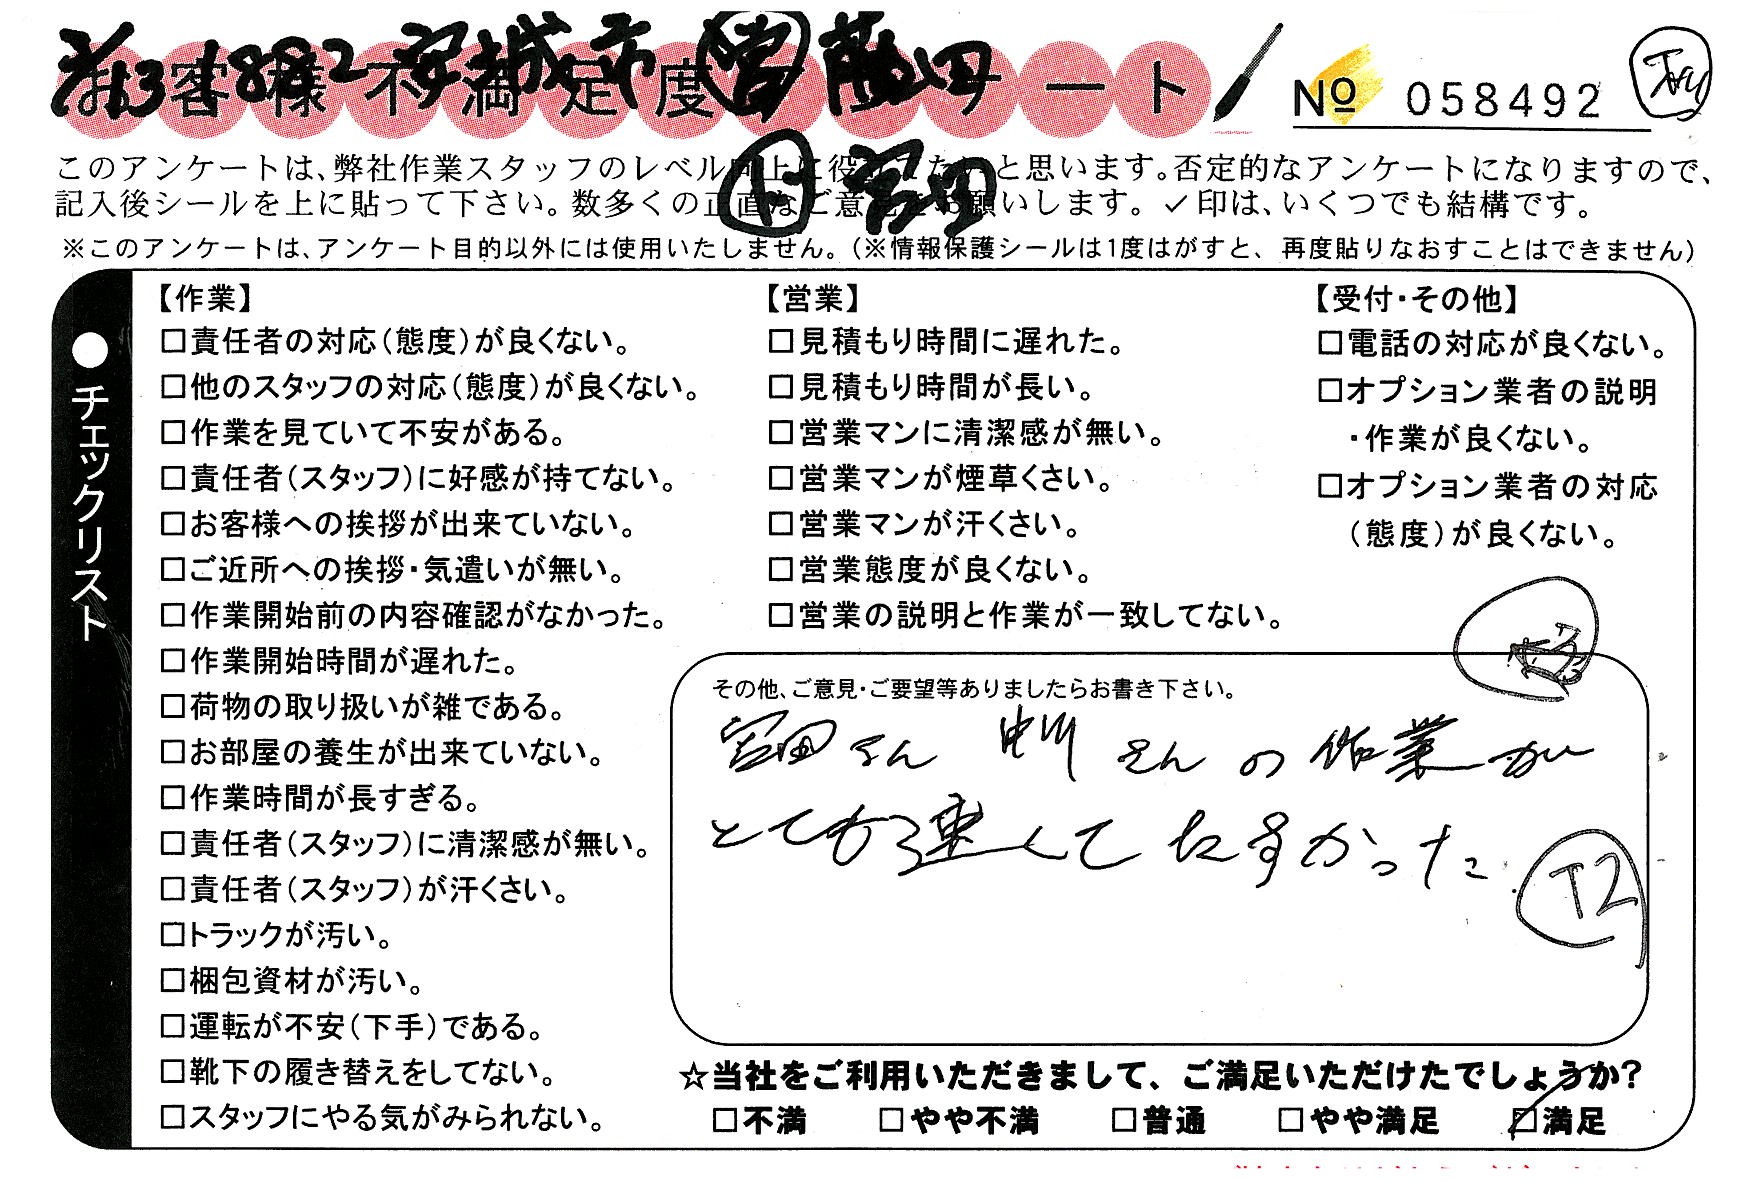 お客様不満足度アンケート
安城市 営 藤田
№ 058492
このアンケートは、弊社作業スタッフのレベル向上に役立てたいと思います。否定的なアンケートになりますので、
記入後シールを上に貼って下さい。数多くの正直なご意見をお願いします。✓印は、いくつでも結構です。
宮田
※このアンケートは、アンケート目的以外には使用いたしません。(※情報保護シールは1度はがすと、再度貼りなおすことはできません)
●チェックリスト
【作業】
□責任者の対応(態度)が良くない。
□他のスタッフの対応(態度)が良くない。
□作業を見ていて不安がある。
□責任者(スタッフ)に好感が持てない。
□お客様への挨拶が出来ていない。
□ご近所への挨拶・気遣いが無い。
□作業開始前の内容確認がなかった。
□作業開始時間が遅れた。
□荷物の取り扱いが雑である。
□お部屋の養生が出来ていない。
□作業時間が長すぎる。
□責任者(スタッフ)に清潔感が無い。
□責任者(スタッフ)が汗くさい。
□トラックが汚い。
□梱包資材が汚い。
□運転が不安(下手)である。
□靴下の履き替えをしてない。
□スタッフにやる気がみられない。
【営業】
□見積もり時間に遅れた。
□見積もり時間が長い。
□営業マンに清潔感が無い。
□営業マンが煙草くさい。
□営業マンが汗くさい。
□営業態度が良くない。
□営業の説明と作業が一致してない。
【受付・その他】
□電話の対応が良くない。
□オプション業者の説明
・作業が良くない。
□オプション業者の対応
(態度)が良くない。
その他、ご意見・ご要望等ありましたらお書き下さい。
宮田さん 中川さんの作業が
とても速くてたすかった
T2
☆当社をご利用いただきまして、ご満足いただけたでしょうか?
□不満 □やや不満 □普通 □やや満足 ☑満足